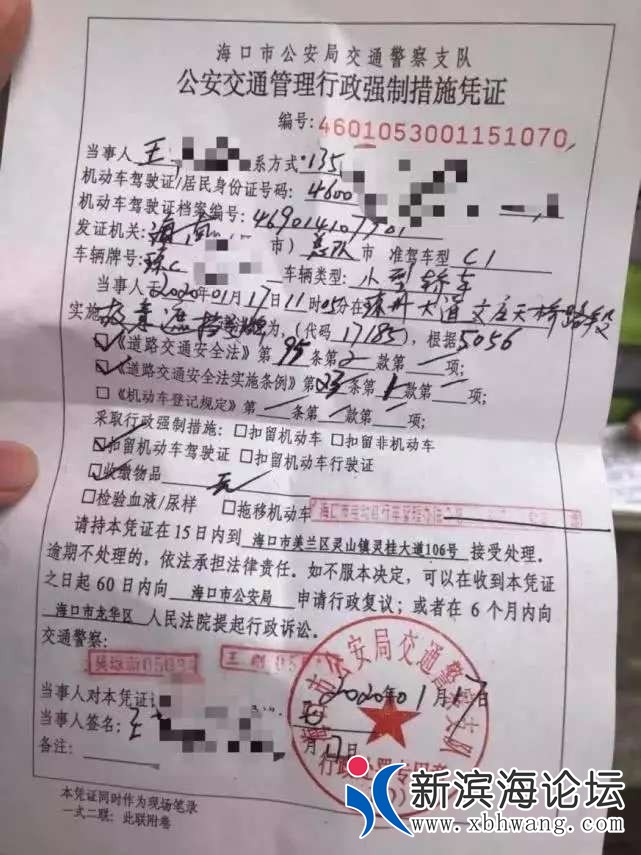 海口市公安局交通警察支队
公安交通管理行政强制措施凭证
编号:4601053001151070
当事人 王 系方式:135
机动车驾驶证/居民身份证号码:4600
机动车驾驶证档案编号:469014107701
发证机关:海南 市)总队市 准驾车型 C1
车辆牌号:琼C 车辆类型:小型轿车
当事人于2020年01月17日11时05分在琼州大道文庄天桥路段
实施故意遮挡号牌为,(代码17185),根据5056
☑《道路交通安全法》第95条第2款第一项;
☑《道路交通安全法实施条例》第23条第1款第一项;
□《机动车登记规定》第一条第一款第一项;
采取行政强制措施:□扣留机动车 □扣留非机动车
☑扣留机动车驾驶证 □扣留机动车行驶证
☑收缴物品 无
□检验血液/尿样 □拖移机动车
请持本凭证在15日内到 海口市美兰区灵山镇灵桂大道106号 接受处理。
逾期不处理的,依法承担法律责任。如不服本决定,可以在收到本凭证
之日起60日内向 海口市公安局 申请行政复议;或者在6个月内向
海口市龙华区 人民法院提起行政诉讼。
交通警察:
2020年01月17日
当事人对本凭证
当事人签名: 王 月17日
备注:
海口市公安局交通警察支队
行政处理专用章
本凭证同时作为现场笔录
一式二联:此联附卷
新滨海论坛
www.xbhwang.com